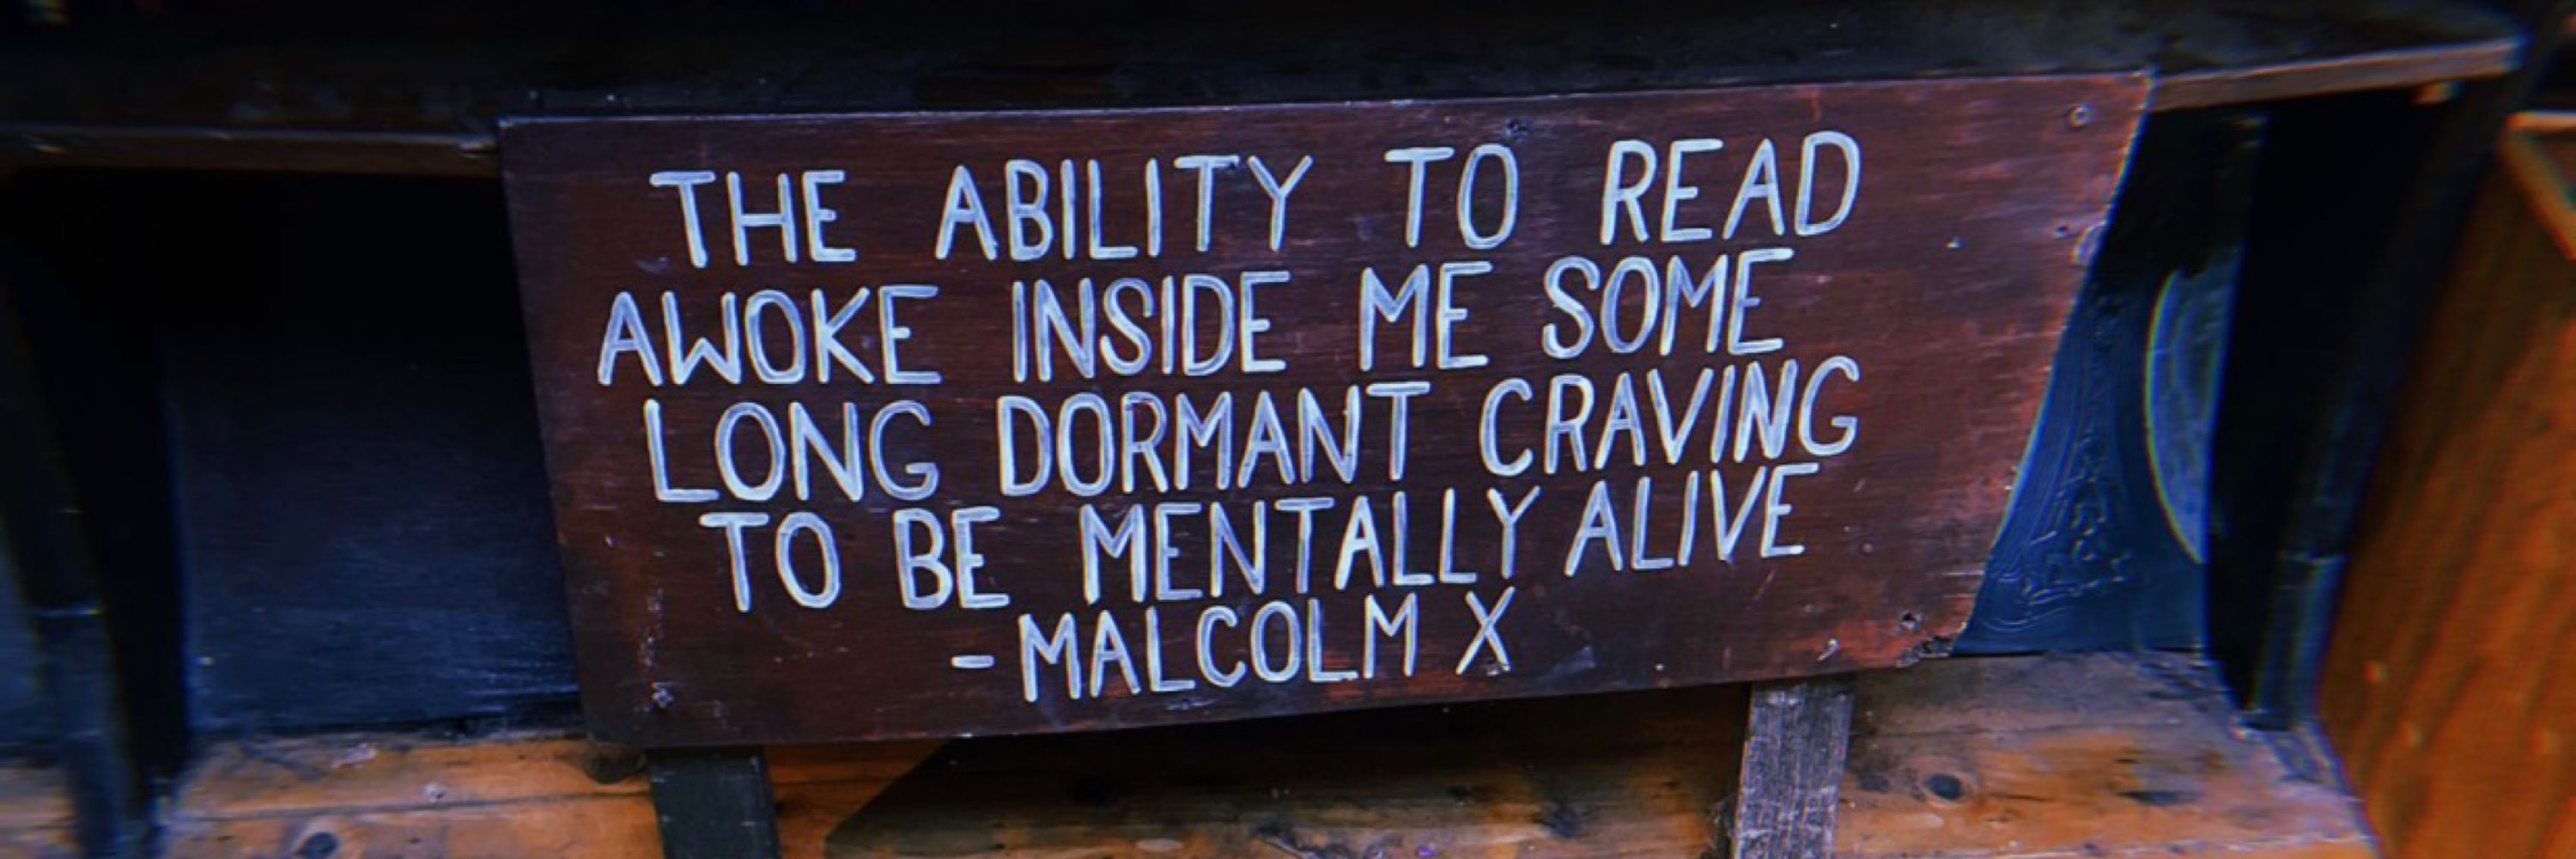 THE ABILITY TO READ
AWOKE INSIDE ME SOME
LONG DORMANT CRAVING
TO BE MENTALLY ALIVE
-MALCOLM X